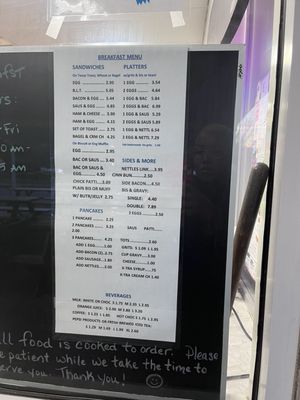 BREAKFAST MENU
SANDWICHES
On Texas Toast, Wheat or Bagel
EGG 2.95
B.L.T. 5.05
BACON & EGG 5.44
SAUS & EGG
HAM & CHEESE 3.90
HAM & EGG 4.35
SET OF TOAST 2.75
BAGEL & CRM CH 4.25
On Biscuit or Eng Muffin
EGG 2.95
BAC OR SAUS 3.40
BAC OR SAUS &
EGG 4.50
CHICK PATTI
PLAIN BIS OR MUFF
W/ BUTR/JELLY 2.75
PANCAKES
1 PANCAKE 2.25
2 PANCAKES
3 PANCAKES 4.25
ADD 1 EGG 1.00
ADD BACON (2)
ADD SAUSAGE
ADD NETTLES
PLATTERS
w/grits & bis or toast
1 EGG 3.54
2 EGGS 4.64
1 EGG & BAC 5.84
2 EGGS & BAC 6.99
1 EGG & SAUS 5.29
2 EGGS & SAUS 5.89
1 EGG & NETTL 6.54
2 EGG & NETTL 7.29
SIDES & MORE
NETTLES LINK 3.95
CINN BUN 2.50
SIDE BACON 4.50
BIS & GRAVY:
SINGLE: 4.40
DOUBLE: 7.89
2 EGGS 2.50
SAUS PATTI
TOTS 2.60
GRITS: S 1.09 L 1.95
CUP GRAVY 3.00
CHEESE 1.00
X-TRA SYRUP .75
X-TRA CREAM CH 1.40
BEVERAGES
MILK: WHITE OR CHOC S 1.75 M 2.35 L 2.65
ORANGE JUICE: S 1.99 M L 3.20
COFFEE: S 1.25 L 1.85 HOT CHOC S 1.75 L 2.95
PEPSI PRODUCTS OR FRESH BREWED ICED TEA:
S 1.29 M 1.69 L 1.99 XL 2.60
All food is cooked to order. Please
be patient while we take the time to
serve you. Thank you!